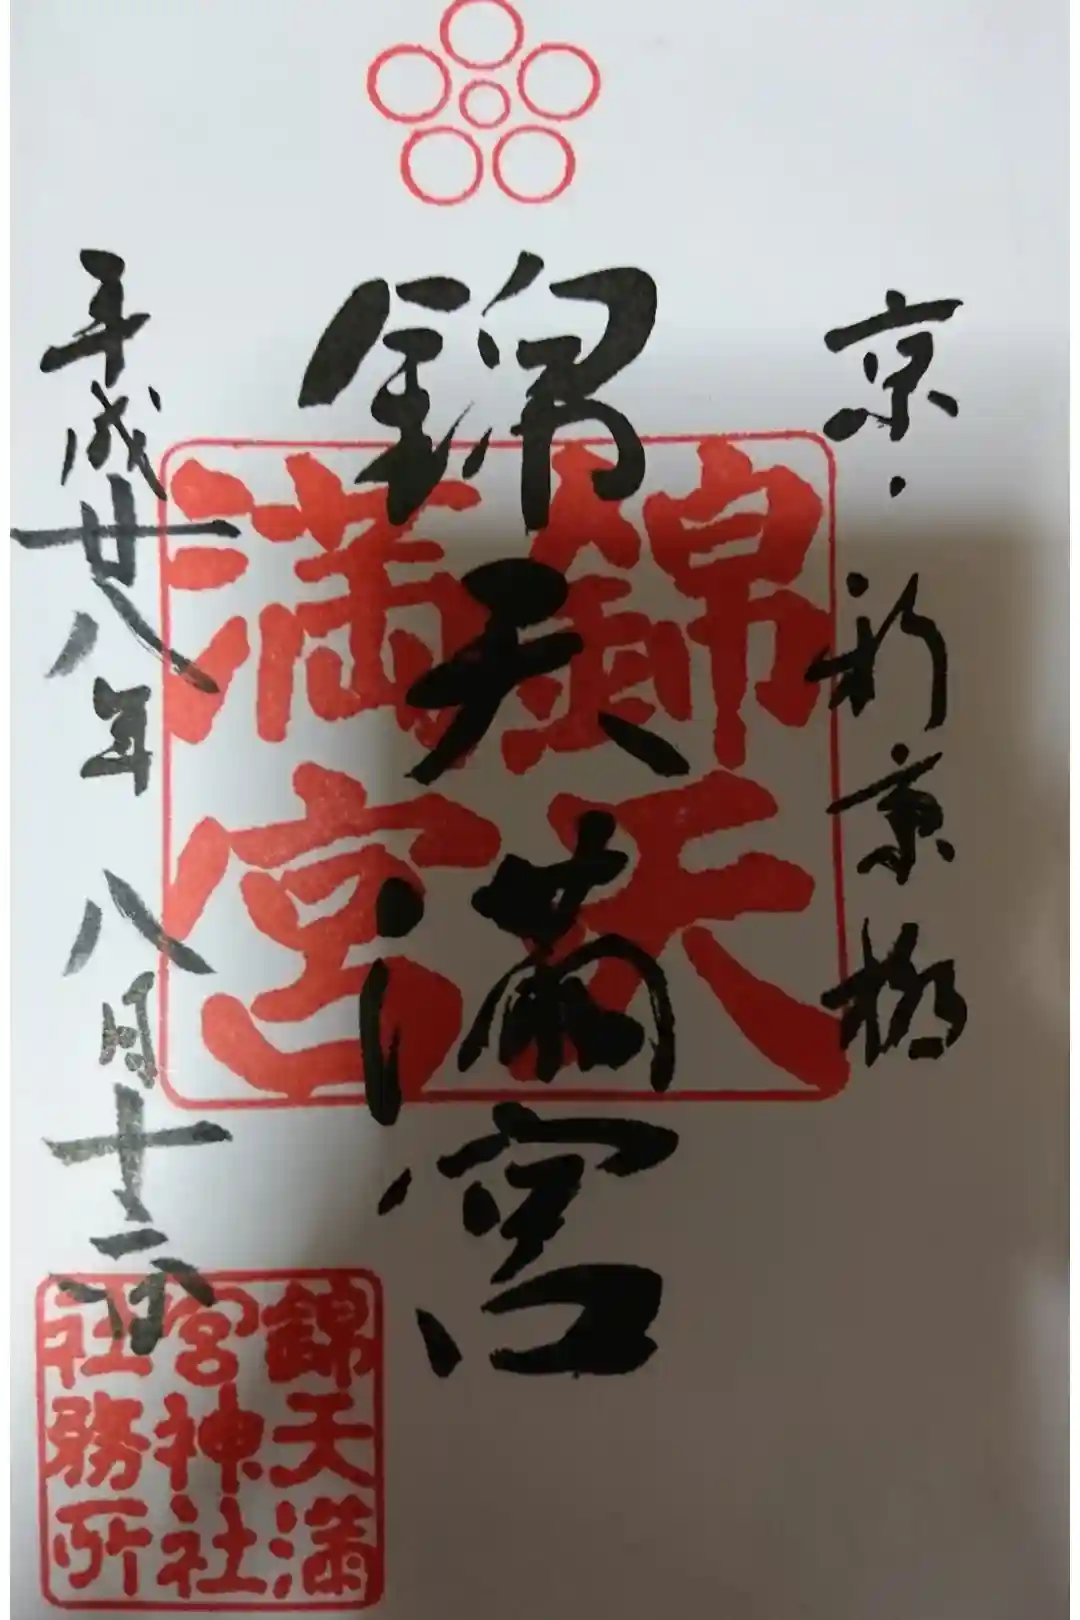 京・新京極
錦天満宮
錦天
満宮
平成廿八年 八月十二日
錦天満
宮神社
社務所